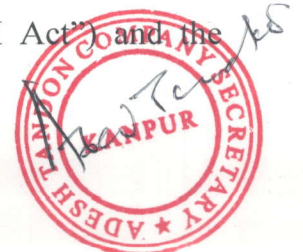 Act") and the
ADESH TANDON COMPANY SECRETARY
KANPUR